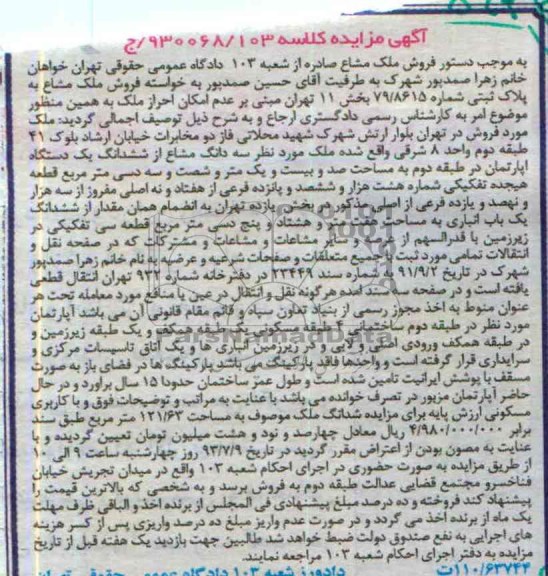 آگهی مزایده کلاسه ۹۳۰۰۶۸/۱۰۳/ج
به موجب دستور فروش ملک مشاع صادره از شعبه ۱۰۳ دادگاه عمومی حقوقی تهران خواهان
خانم زهرا صمدپور شهرک به طرفیت آقای حسین صمدپور به خواسته فروش ملک مشاع به
پلاک ثبتی شماره ۷۹/۸۶۱۵ بخش ۱۱ تهران مبنی بر عدم امکان احراز ملک به همین منظور
موضوع امر به کارشناس رسمی دادگستری ارجاع و به شرح ذیل توصیف اجمالی گردید: ملک
مورد فروش در تهران بلوار ارتش شهرک شهید محلاتی فاز دو مخابرات خیابان ارشاد بلوک ۴۱
طبقه دوم واحد ۸ شرقی واقع شده ملک مورد نظر سه دانگ مشاع از ششدانگ یک دستگاه
اپارتمان در طبقه دوم به مساحت صد و بیست و یک متر و شصت و سه دسی متر مربع قطعه
هیجده تفکیکی شماره هشت هزار و ششصد و پانزده فرعی از هفتاد و نه اصلی مفروز از سه هزار
و نهصد و یازده فرعی از اصلی مذکور در بخش یازده تهران به انضمام همان مقدار از ششدانگ
یک باب انباری به مساحت هفت متر و هشتاد و پنج دسی متر مربع قطعه سی تفکیکی در
زیرزمین با قدرالسهم از عرصه و سایر مشاعات و مشاعات و مشترکات که در صفحه نقل و
انتقالات تمامی مورد ثبت با جمیع متعلقات و صفحات شرعیه و عرضیه به نام خانم زهرا صمدپور
شهرک در تاریخ ۹۱/۹/۲ به شماره سند ۲۳۴۴۹ در دفترخانه شماره ۹۳۲ تهران انتقال قطعی
یافته است و در صفحه سه سند آمده هرگونه نقل و انتقال در عین یا منافع مورد معامله تحت هر
عنوان منوط به اخذ مجوز رسمی از بنیاد تعاون سپاه و قائم مقام قانونی آن می باشد آپارتمان
مورد نظر در طبقه دوم ساختمانی ۴ طبقه مسکونی یک طبقه همکف و یک طبقه زیرزمین و
در طبقه همکف ورودی اصلی و لابی و در زیرزمین انباری ها و یک آتاق تاسیسات مرکزی و
سرایداری قرار گرفته است و واحدها فاقد پارکینگ می باشد پارکینگ ها در فضای باز به صورت
مسقف با پوشش ایرانیت تامین شده است و طول عمر ساختمان حدودا ۱۵ سال براورد و در حال
حاضر آپارتمان مزبور در تصرف خوانده می باشد با عنایت به مراتب و توضیحات فوق و با کاربری
مسکونی ارزش پایه برای مزایده شدانگ ملک موصوف به مساحت ۱۲۱/۶۳ متر مربع طبق سند
برابر ۴/۹۸۰/۰۰۰/۰۰۰ ریال معادل چهارصد و نود و هشت میلیون تومان تعیین گردیده و با
عنایت به مصون بودن از اعتراض مقرر گردید در تاریخ ۹۳/۷/۹ روز چهارشنبه ساعت ۹ الی ۱۰
از طریق مزایده به صورت حضوری در اجرای احکام شعبه ۱۰۳ واقع در میدان تجریش خیابان
فناخسرو مجتمع قضایی عدالت طبقه دوم به فروش برسد و به شخصی که بالاترین قیمت را
پیشنهاد کند فروخته و ده درصد مبلغ پیشنهادی فی المجلس از برنده اخذ و الباقی ظرف مهلت
یک ماه از برنده اخذ می گردد و در صورت عدم واریز مبلغ ده درصد واریزی پس از کسر هزینه
های اجرایی به نفع صندوق دولت ضبط خواهد شد طالبین جهت بازدید یک هفته قبل از تاریخ
مزایده به دفتر اجرای احکام شعبه ۱۰۳ مراجعه نمایند.
۱۱۰/۶۳۷۴۴ت دادورز شعبه ۱۰۳ دادگاه عمومی حقوقی تهران